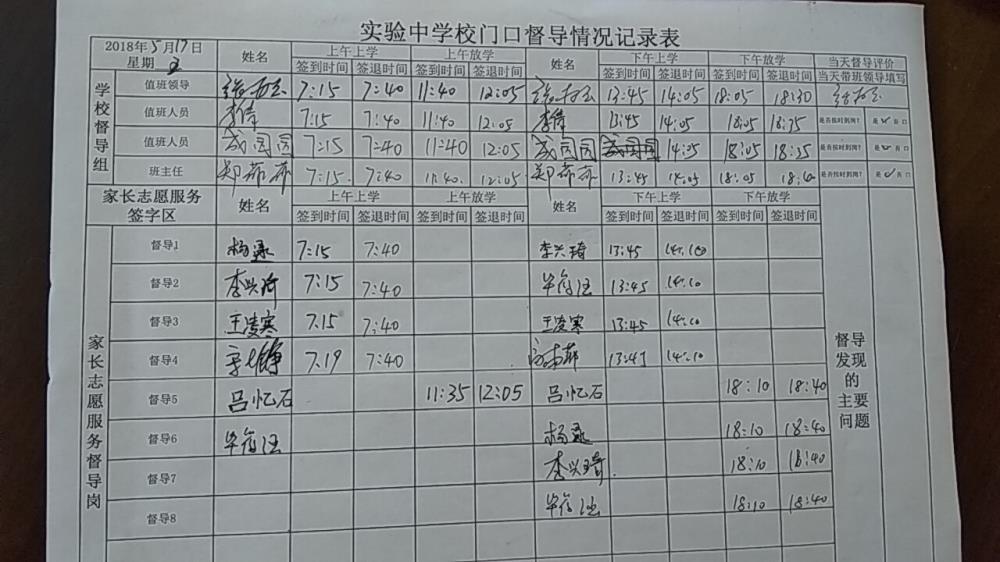 实验中学校门口督导情况记录表
2018年5月17日 星期五 姓名 上午上学 上午放学 姓名 下午上学 下午放学 当天督导评价
签到时间 签退时间 签到时间 签退时间 签到时间 签退时间 签到时间 签退时间 当天带班领导填写
学校督导组
值班领导 7:15 7:40 11:40 12:05 13:45 14:05 18:05 18:30
值班人员 李伟 7:15 7:40 11:40 12:05 李伟 13:45 14:05 18:05 18:25 是否按时到岗? 是 否口
值班人员 成园园 7:15 7:40 11:40 12:05 成园园 14:25 18:05 18:25 是否按时到岗? 是 否口
班主任 郑茹茹 7:15. 7:40 11:40. 12:05 郑茹茹 13:45 14:05 18:05 是否按时到岗? 是 否口
家长志愿服务签字区 姓名 上午上学 上午放学 姓名 下午上学 下午放学
签到时间 签退时间 签到时间 签退时间 签到时间 签退时间 签到时间 签退时间
家长志愿服务督导岗
督导1 7:15 7:40 李兴琦 13:45
督导2 李兴琦 7:15 7:40 13:45 14:10
督导3 王凌寒 7:15 7:40 王凌寒 13:45 14:10
督导4 7:19 7:40 14:10
督导5 吕忆石 11:35 12:05 吕忆石 18:10 18:40
督导6 18:10 18:40
督导7 李兴琦. 18:10
督导8 18:10 18:40
督导发现的主要问题